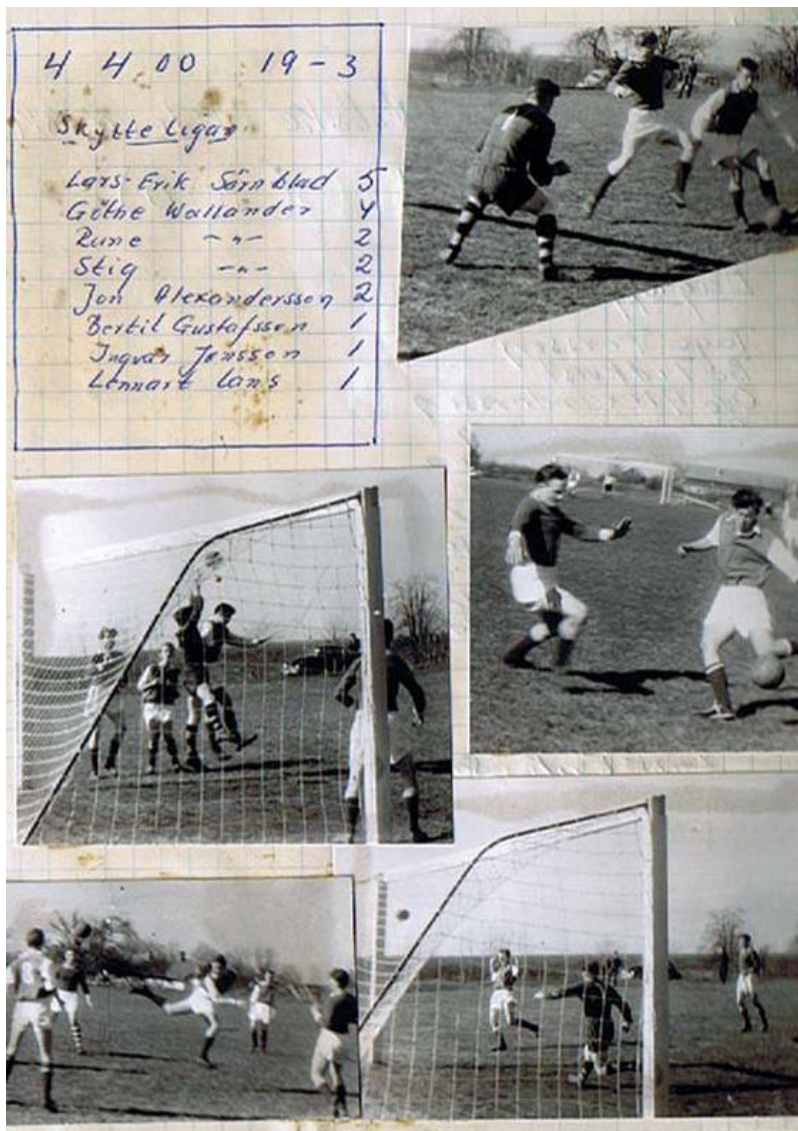 4 4 0 0 19 - 3
Skytte ligan
Lars-Erik Särnblad 5
Göthe Wallander 4
Rune -"- 2
Stig -"- 2
Jon Alexandersson 2
Bertil Gustafsson 1
Ingvar Jonsson 1
Lennart Lans 1